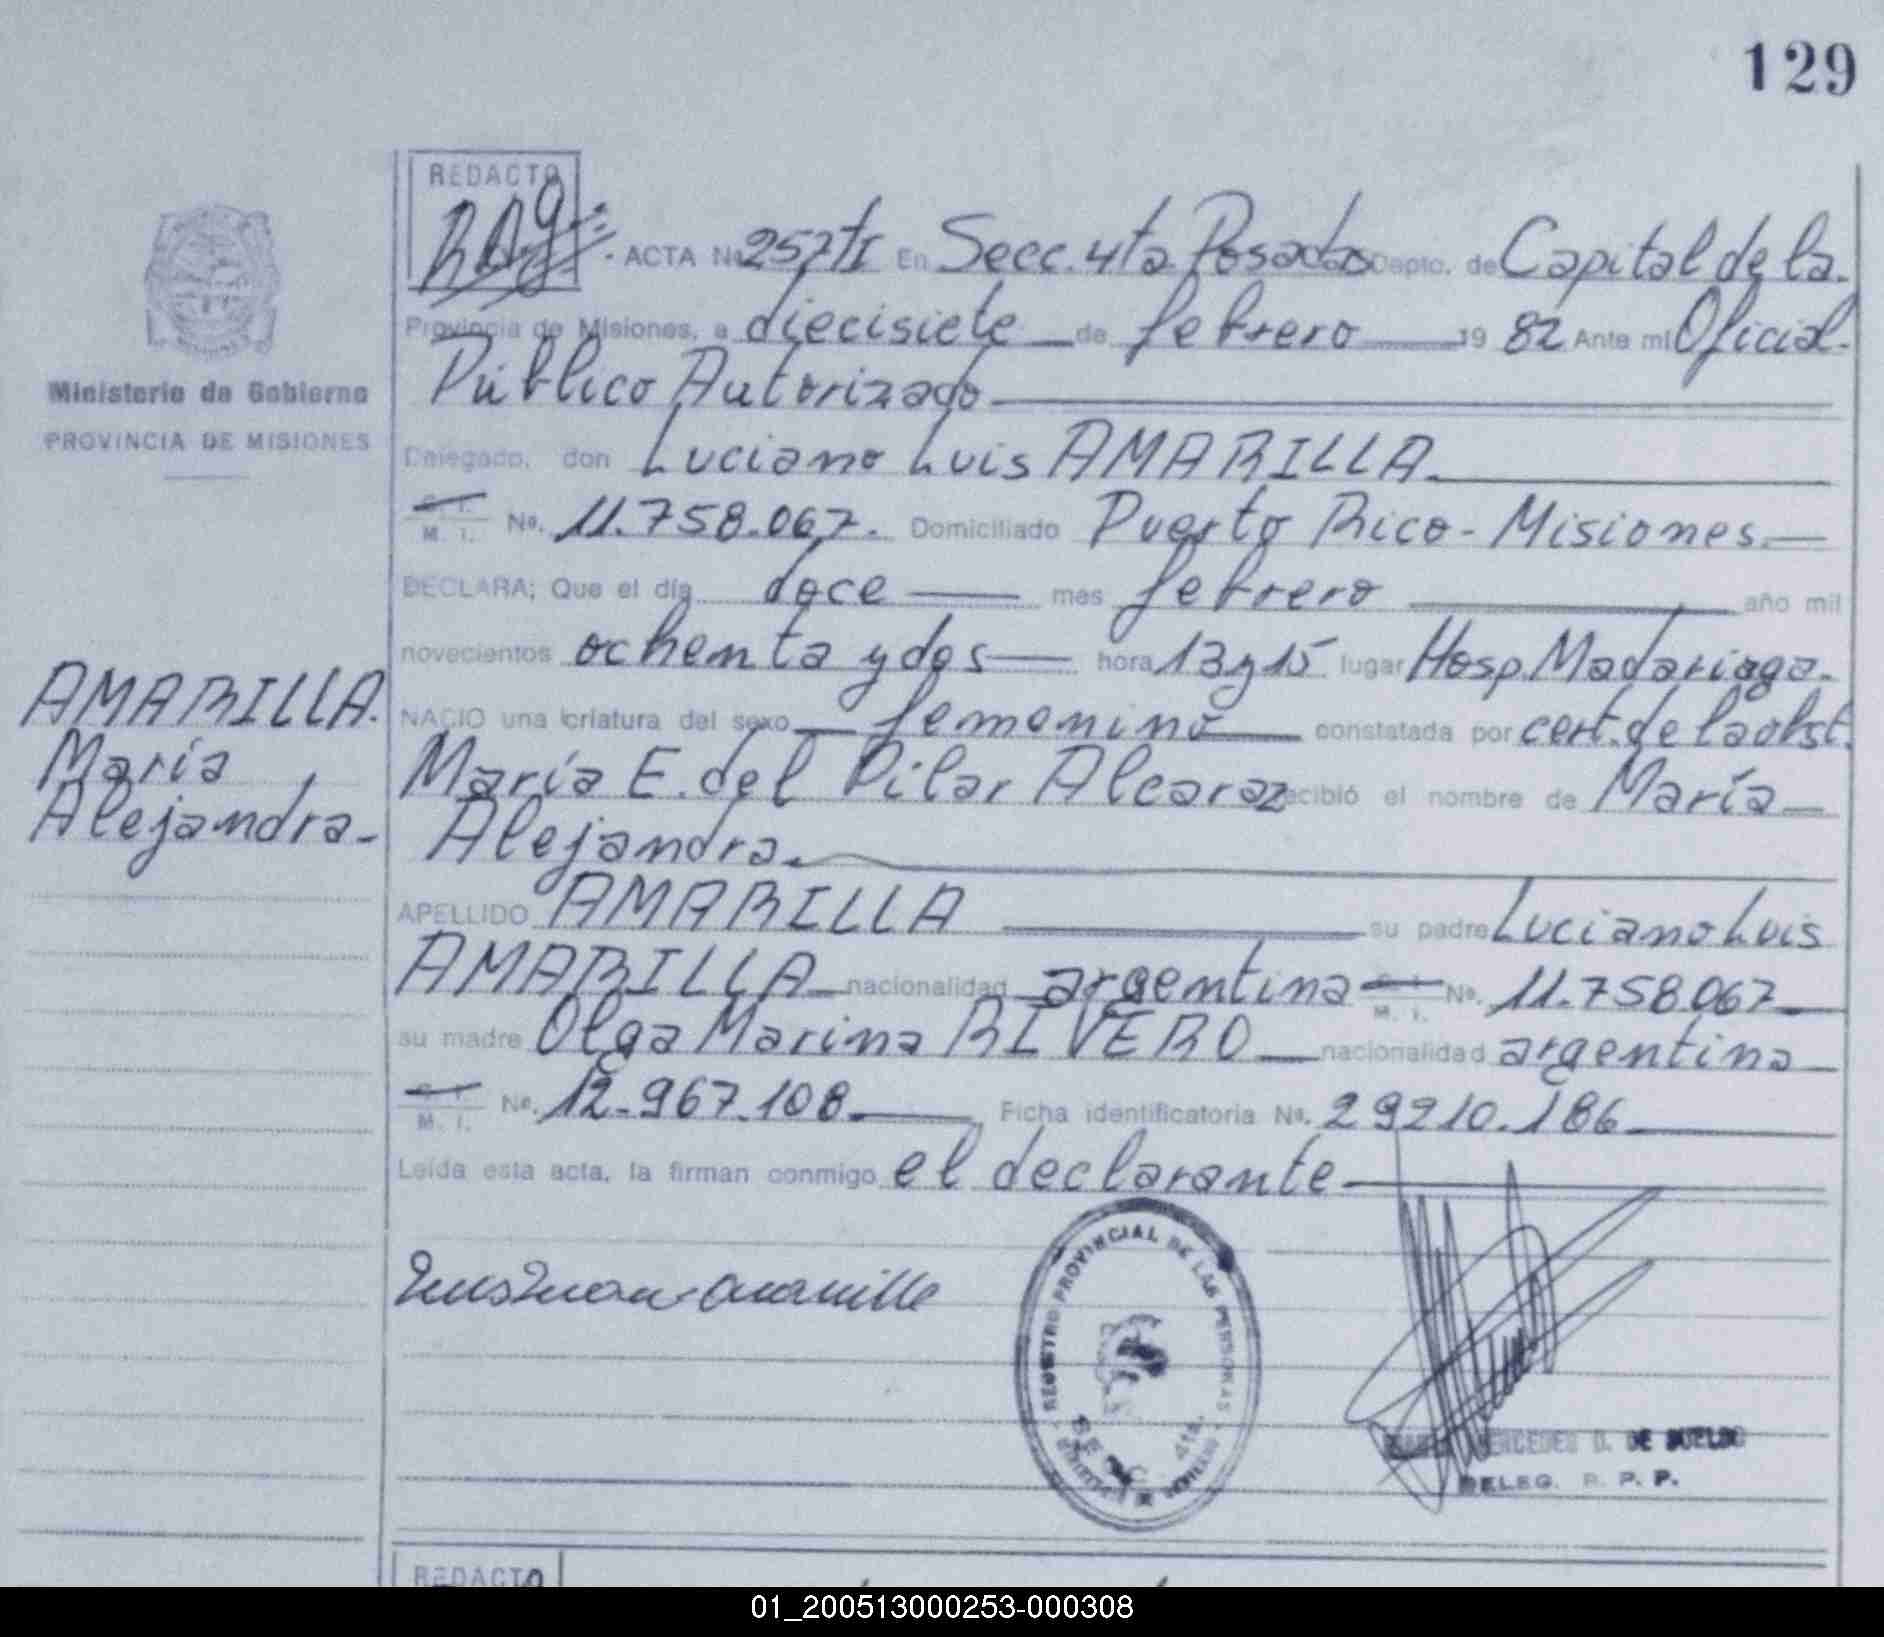 129
REDACTO
ACTA Nº 257 tI En Secc. 4ta Posadas Depto. de Capital de la
Provincia de Misiones, a diecisiete de febrero 1982 Ante mi Oficial
Público Autorizado
Ministerio de Gobierno
PROVINCIA DE MISIONES
Delegado, don Luciano Luis AMARILLA.
C. I. M. I. Nº. 11.758.067. Domiciliado Puerto Rico - Misiones.
DECLARA; Que el día doce mes febrero año mil
novecientos ochenta y dos hora 13 y 15 lugar Hosp. Madariaga.
AMARILLA.
María
Alejandra-
NACIO una criatura del sexo femenino constatada por cert. de la obst.
María E. del Pilar Alcaraz recibió el nombre de María
Alejandra.
APELLIDO AMARILLA su padre Luciano Luis
AMARILLA nacionalidad argentina C. I. M. I. Nº. 11.758.067
su madre Olga Marina RIVERO nacionalidad argentina
C. I. M. I. Nº. 12.967.108 Ficha identificatoria Nº. 29210.186
Leída esta acta, la firman conmigo el declarante
REGISTRO PROVINCIAL DE LAS PERSONAS
SECC. 4ta.
MERCEDES D. DE SUELDO
DELEG. R. P. P.
REDACTO
01_200513000253-000308